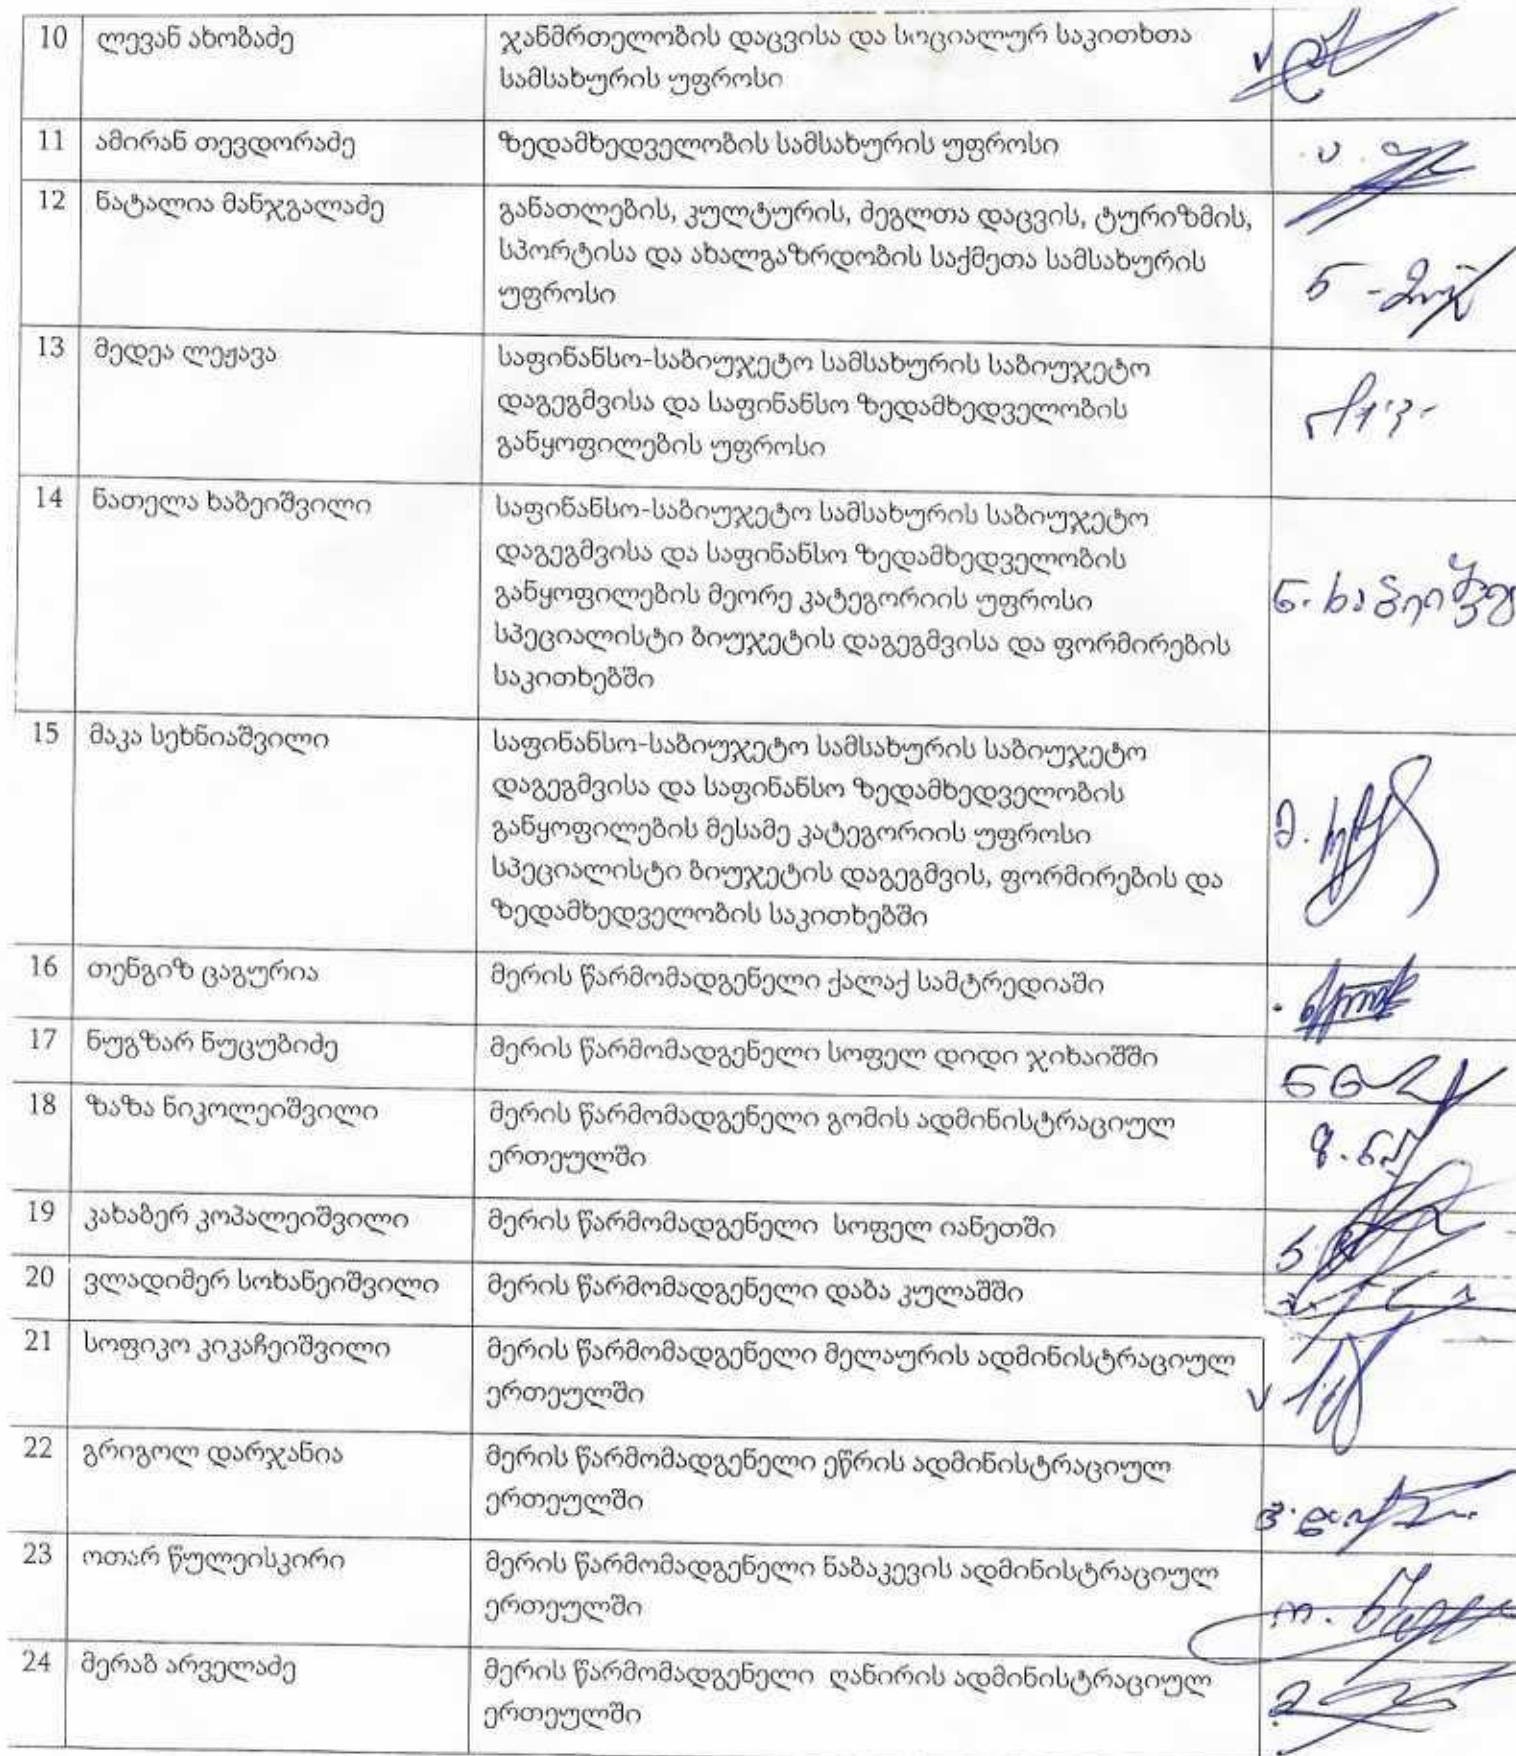 10 ლევან ახობაძე ჯანმრთელობის დაცვისა და სოციალურ საკითხთა
სამსახურის უფროსი
11 ამირან თევდორაძე ზედამხედველობის სამსახურის უფროსი
12 ნატალია მანჯგალაძე განათლების, კულტურის, ძეგლთა დაცვის, ტურიზმის,
სპორტისა და ახალგაზრდობის საქმეთა სამსახურის
უფროსი
13 მედეა ლეჟავა საფინანსო-საბიუჯეტო სამსახურის საბიუჯეტო
დაგეგმვისა და საფინანსო ზედამხედველობის
განყოფილების უფროსი
14 ნათელა ხაბეიშვილი საფინანსო-საბიუჯეტო სამსახურის საბიუჯეტო
დაგეგმვისა და საფინანსო ზედამხედველობის
განყოფილების მეორე კატეგორიის უფროსი
სპეციალისტი ბიუჯეტის დაგეგმვისა და ფორმირების
საკითხებში
15 მაკა სეხნიაშვილი საფინანსო-საბიუჯეტო სამსახურის საბიუჯეტო
დაგეგმვისა და საფინანსო ზედამხედველობის
განყოფილების მესამე კატეგორიის უფროსი
სპეციალისტი ბიუჯეტის დაგეგმვის, ფორმირების და
ზედამხედველობის საკითხებში
16 თენგიზ ცაგურია მერის წარმომადგენელი ქალაქ სამტრედიაში
17 ნუგზარ ნუცუბიძე მერის წარმომადგენელი სოფელ დიდი ჯიხაიშში
18 ზაზა ნიკოლეიშვილი მერის წარმომადგენელი გომის ადმინისტრაციულ
ერთეულში
19 კახაბერ კოპალეიშვილი მერის წარმომადგენელი სოფელ იანეთში
20 ვლადიმერ სოხანეიშვილი მერის წარმომადგენელი დაბა კულაშში
21 სოფიკო კიკაჩეიშვილი მერის წარმომადგენელი მელაურის ადმინისტრაციულ
ერთეულში
22 გრიგოლ დარჯანია მერის წარმომადგენელი ეწრის ადმინისტრაციულ
ერთეულში
23 ოთარ წულეისკირი მერის წარმომადგენელი ნაბაკევის ადმინისტრაციულ
ერთეულში
24 მერაბ არველაძე მერის წარმომადგენელი ღანირის ადმინისტრაციულ
ერთეულში